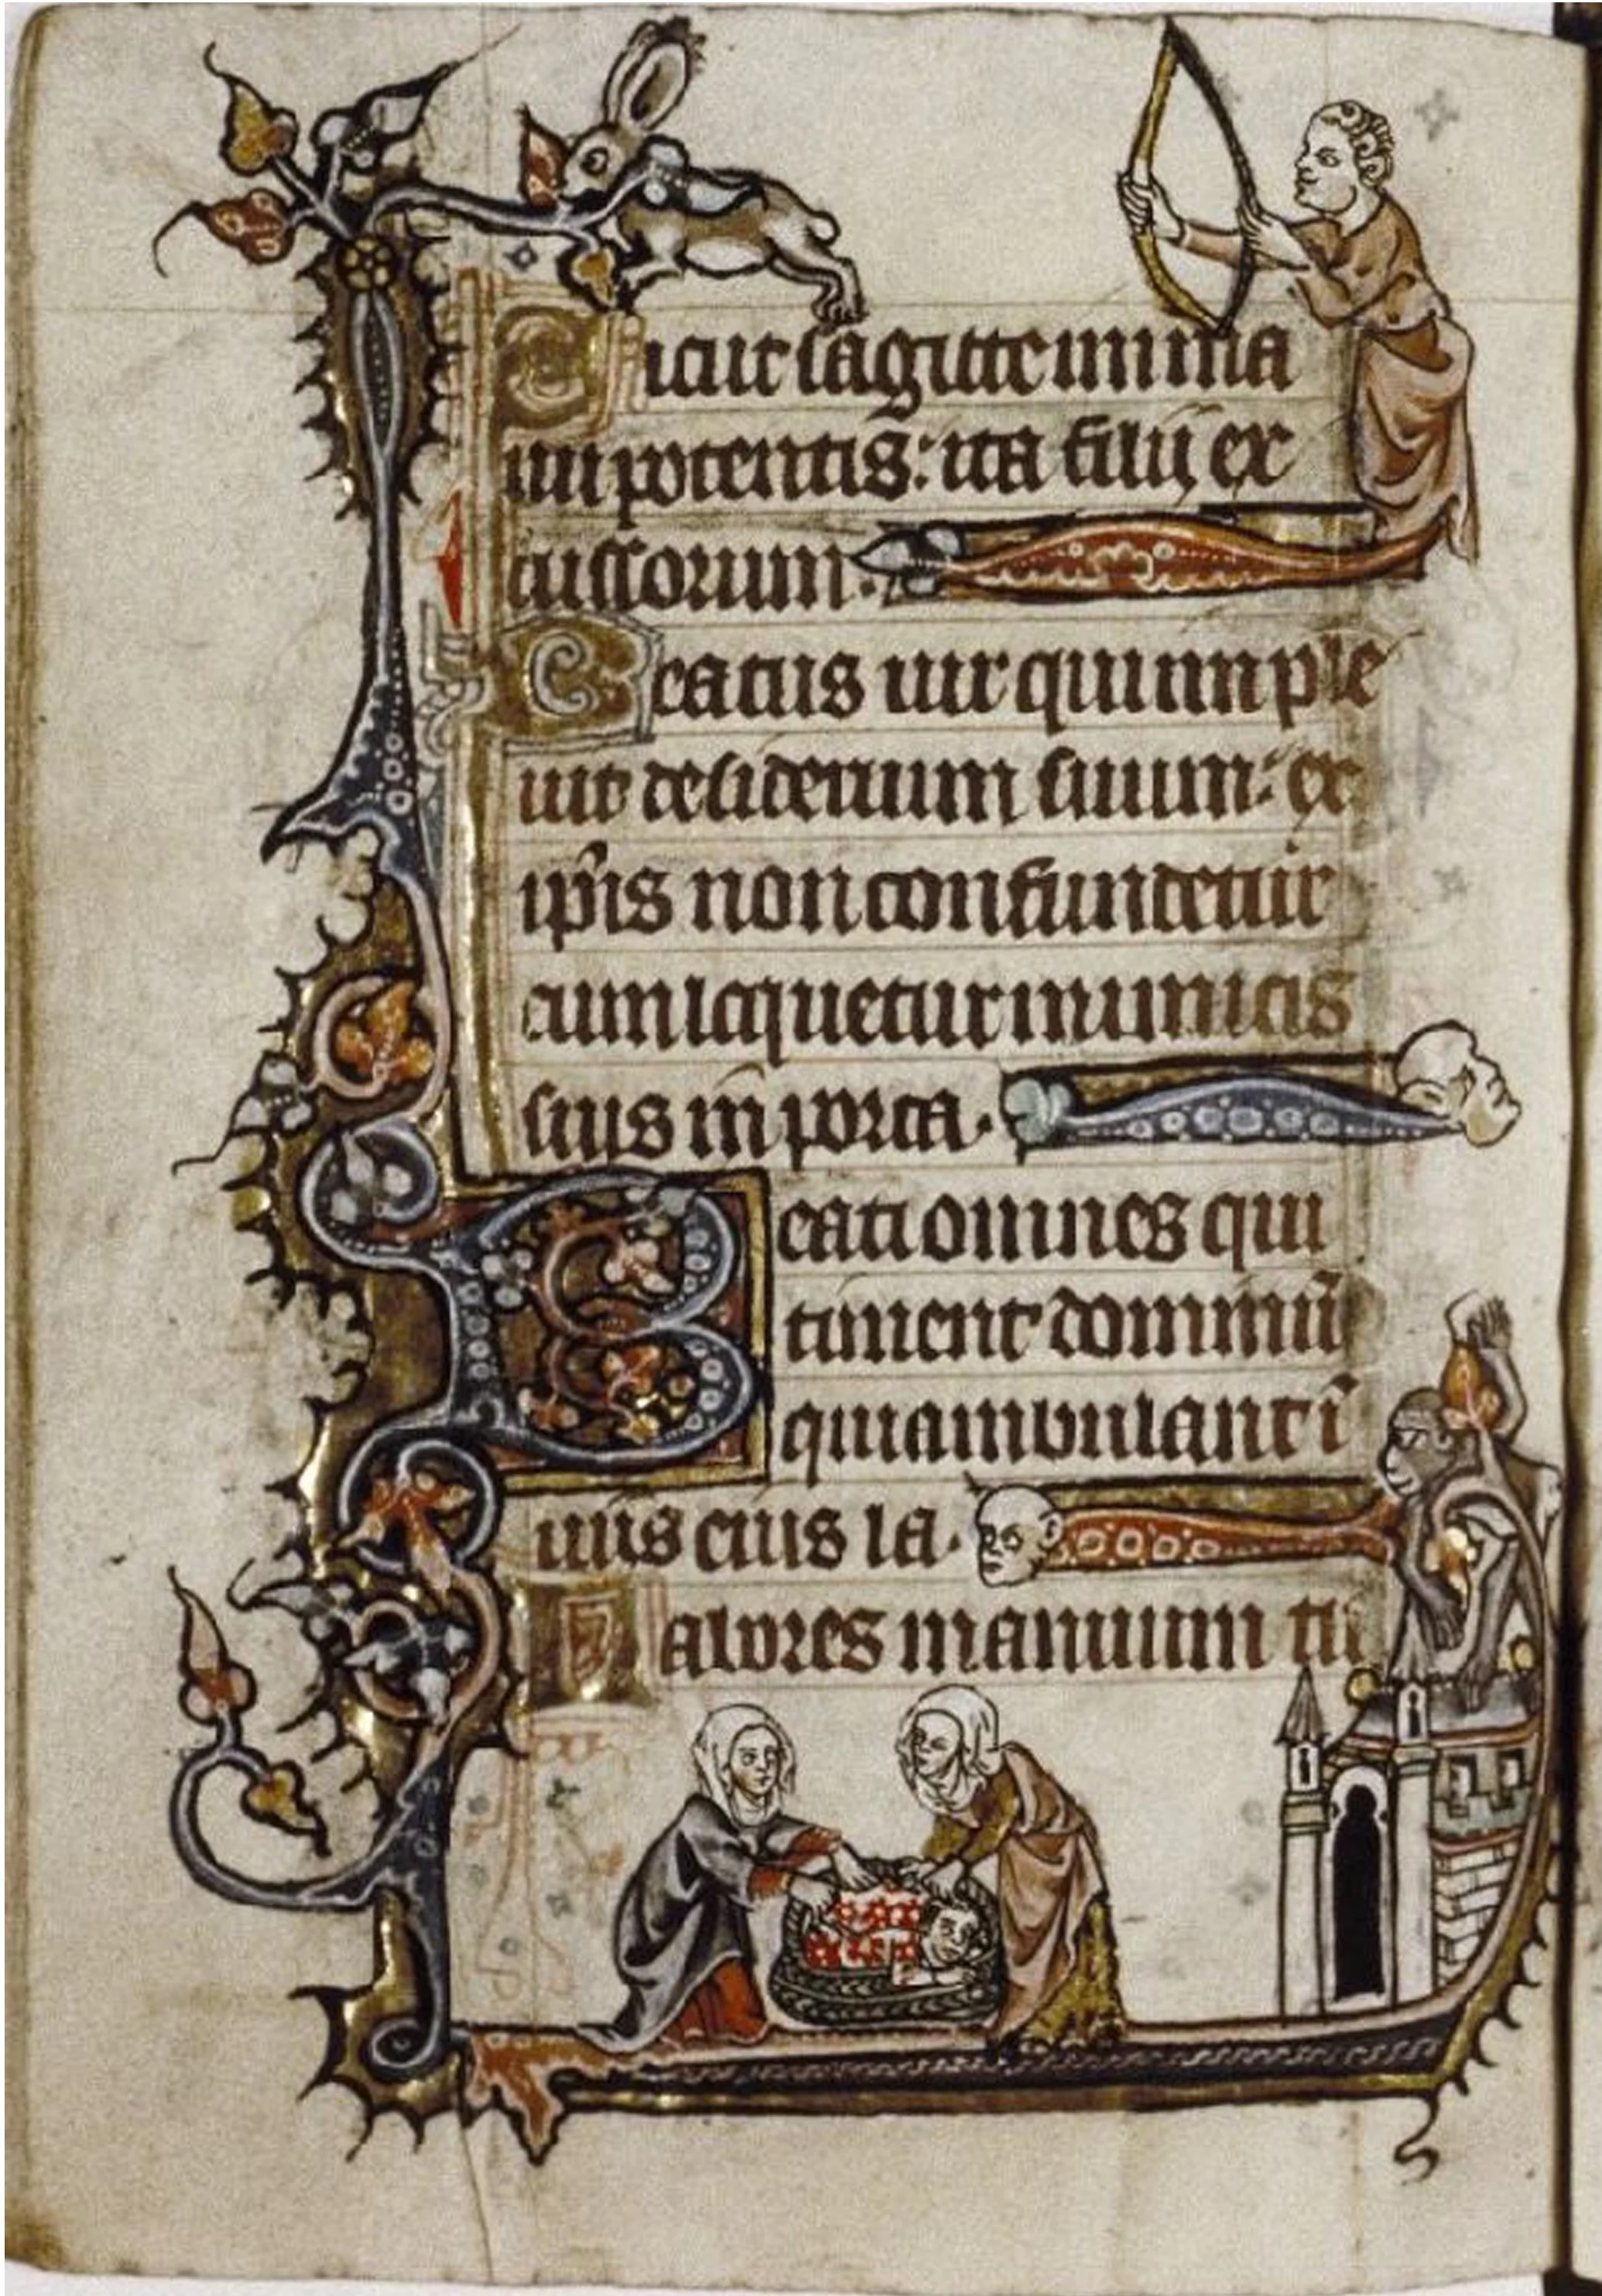 Sicut sagitte in ma
nu potentis: ita filij ex
cussorum.
Beatus uir qui inple
uit desiderium suum: ex
ip̃is non confundetur
cum loquetur inimicis
suis in̄ porta.
Beati omnes qui
timent dominū
qui ambulant ī
uiis eius la.
Labores manuum tu